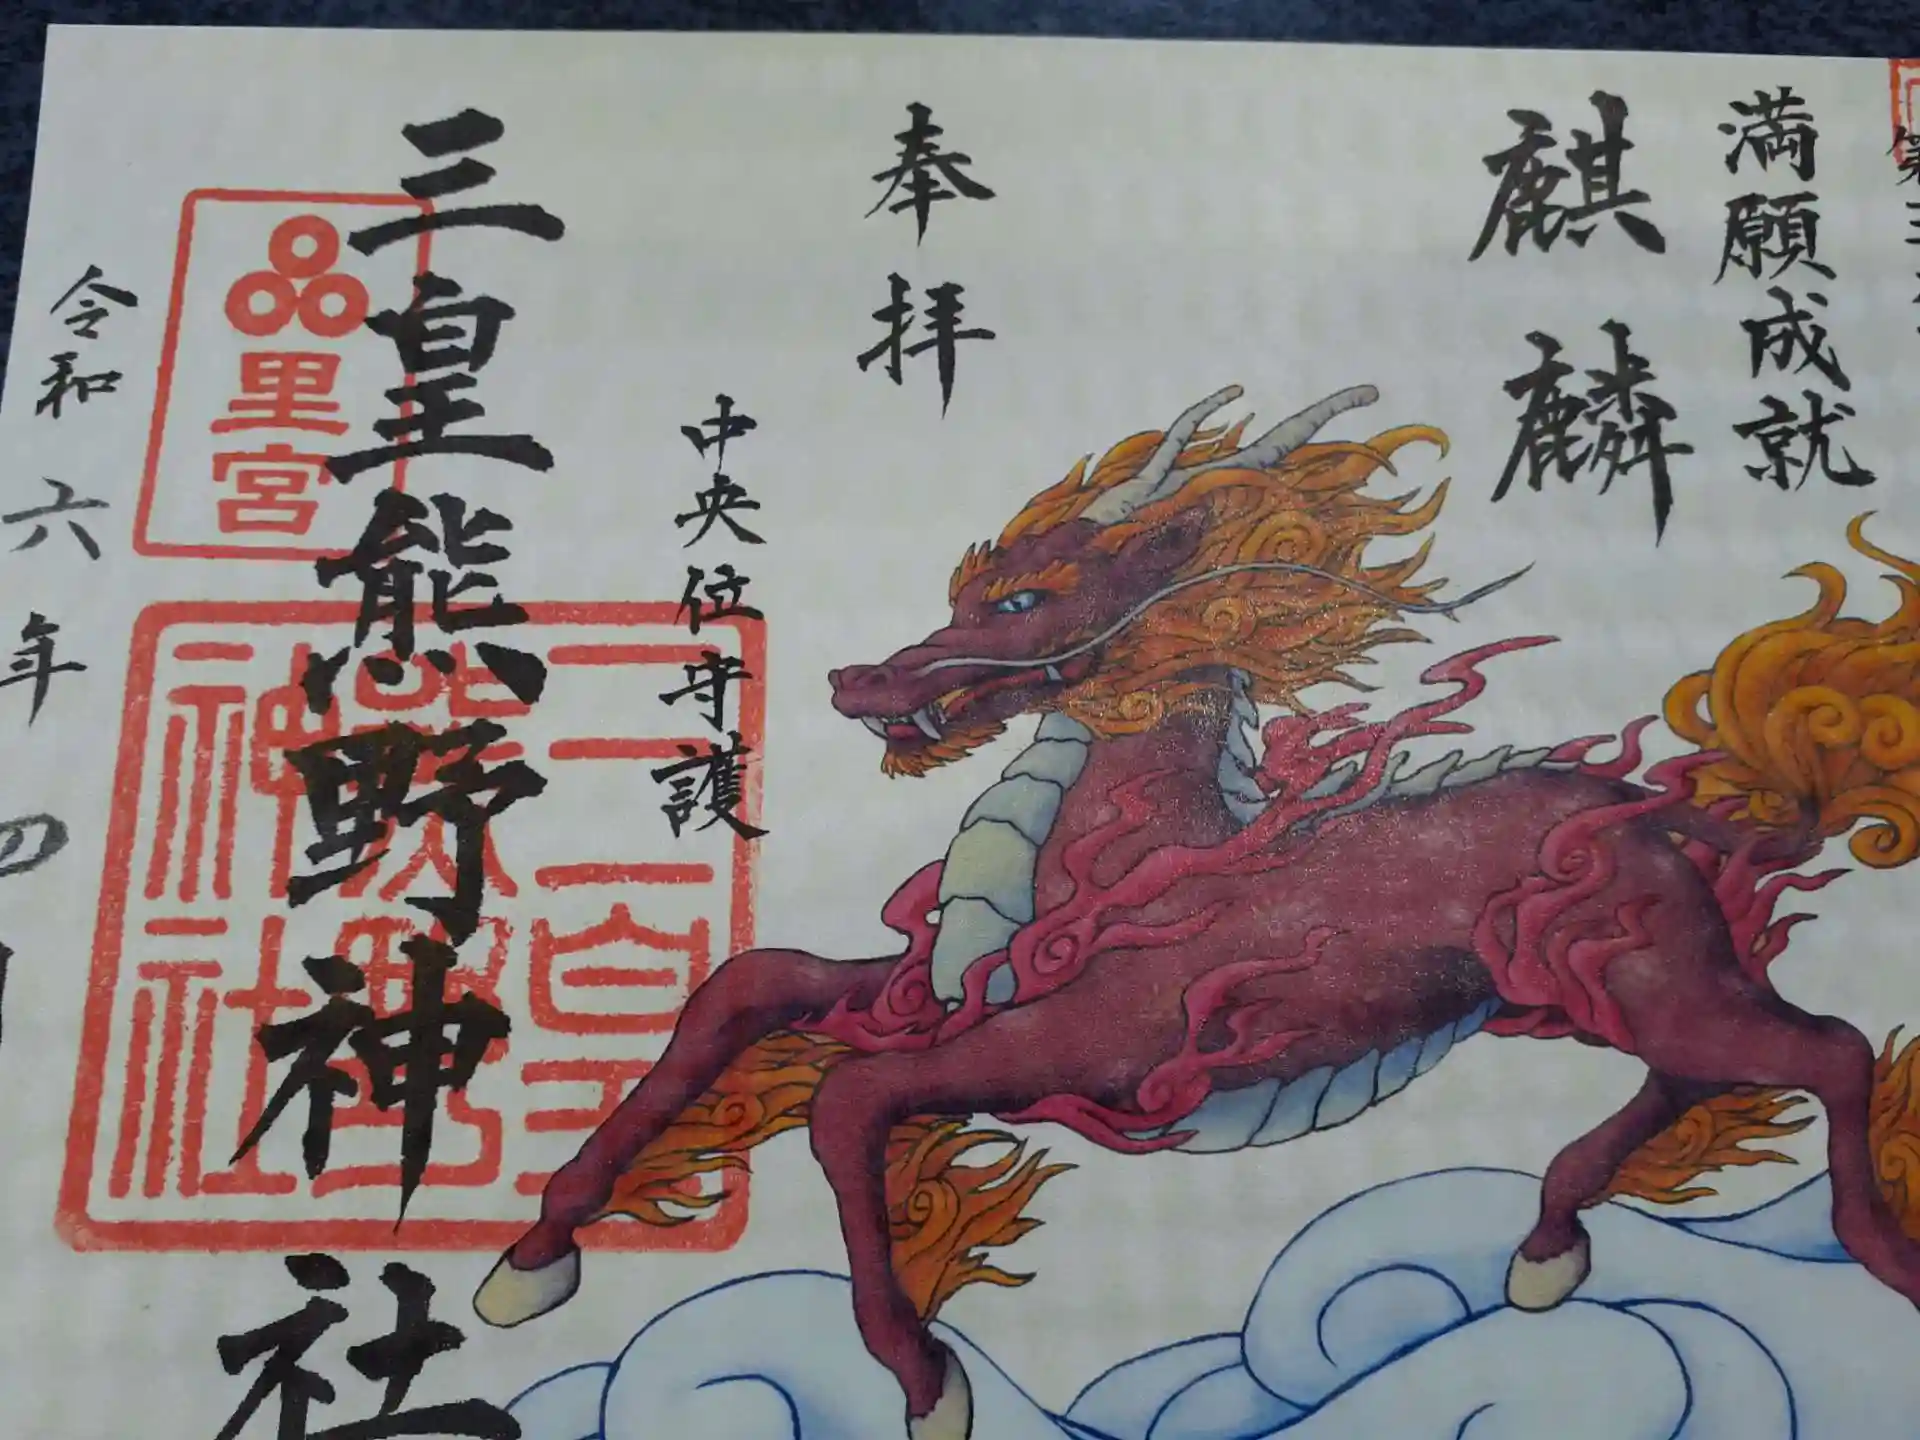 満願成就
麒麟
奉拝
中央位守護
三皇熊野神社
里宮
三皇熊野神社
令和六年